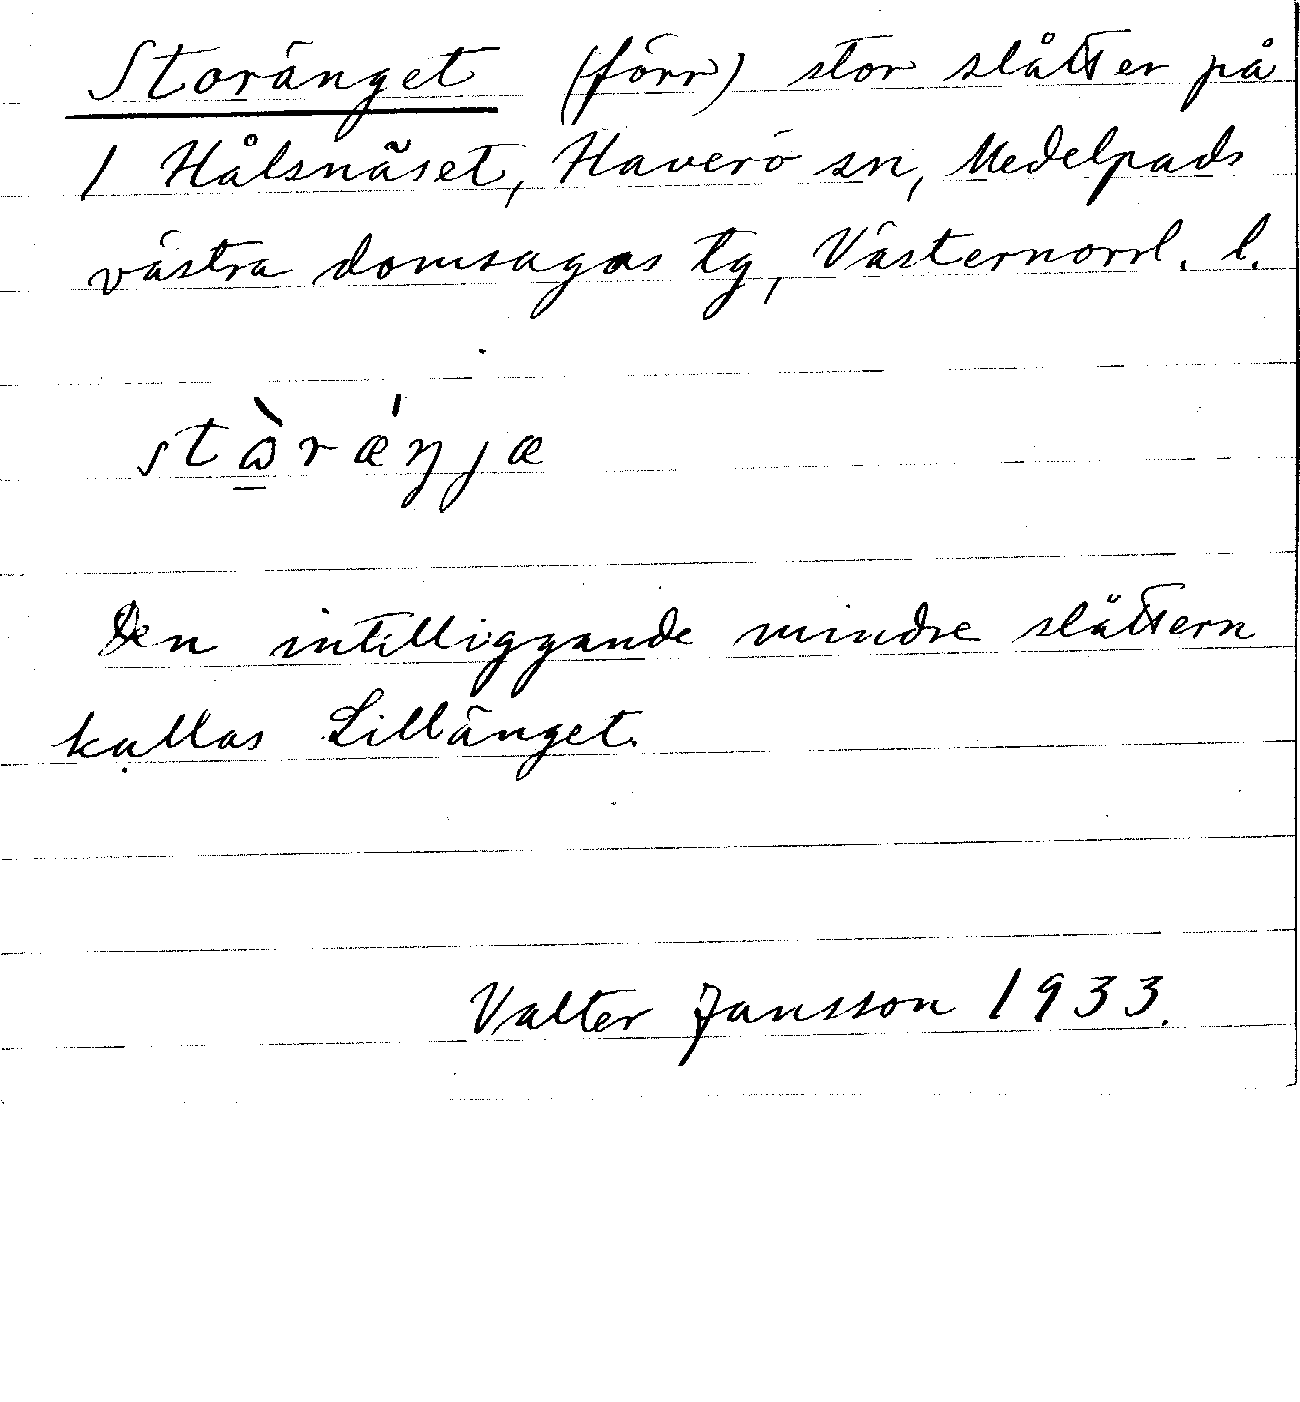 Storänget (förr) stor slåtter på
1 Hålsnäset, Haverö sn, Medelpads
västra domsagas tg, Västernorrl. l.
stɷ̀rǽŋjæ
Den intilliggande mindre slåttern
kallas Lillänget.
Valter Jansson 1933.